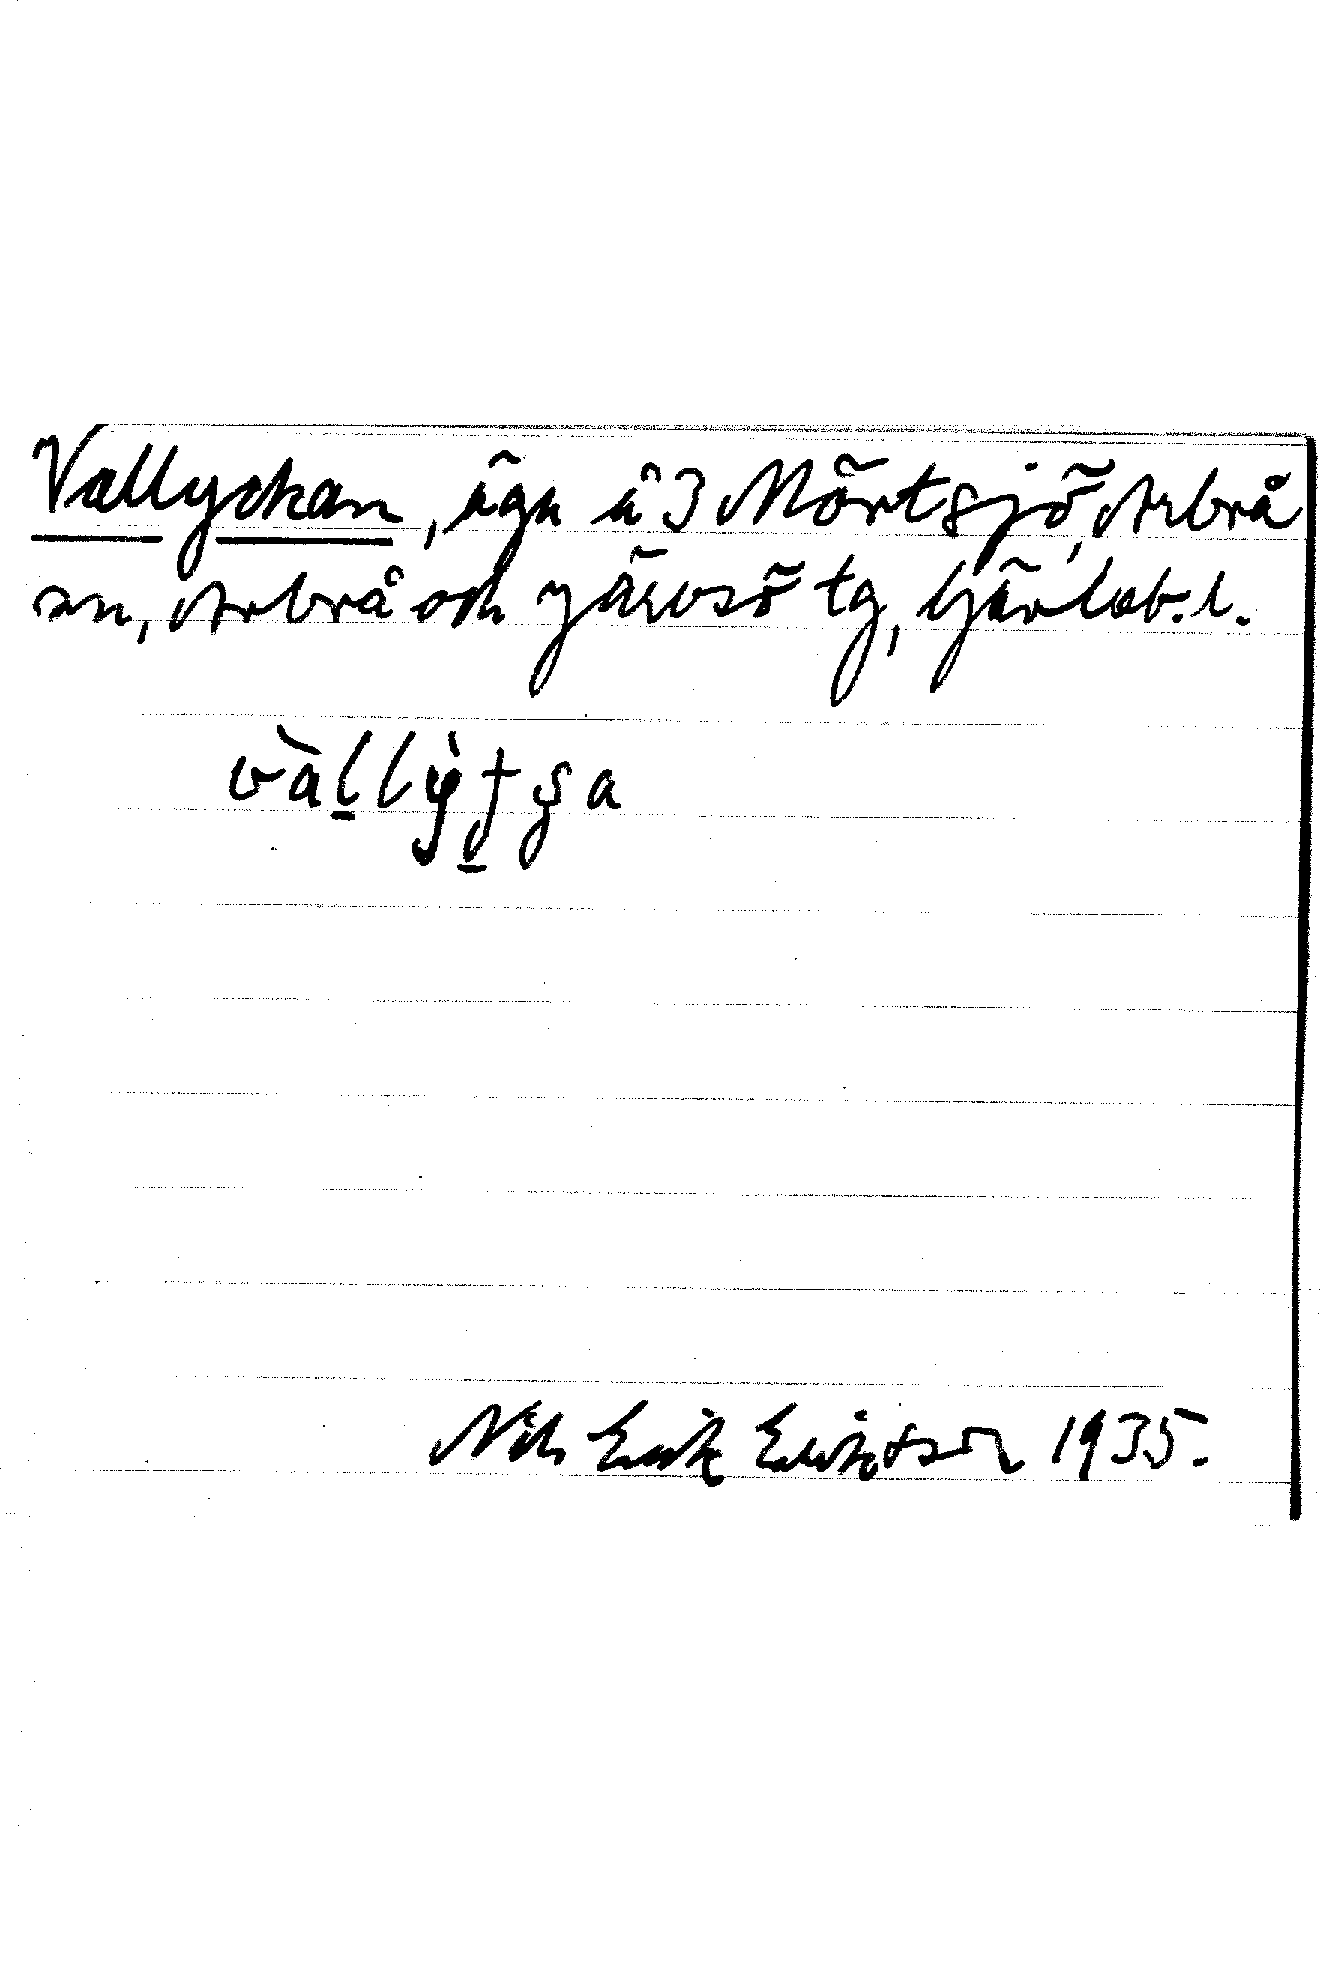 Vallyckan, äga å 3 Mörtsjö, Arbrå
sn, Arbrå och Järvsö tg, Gävleb. l.
Nils Erik Eriksson 1935.